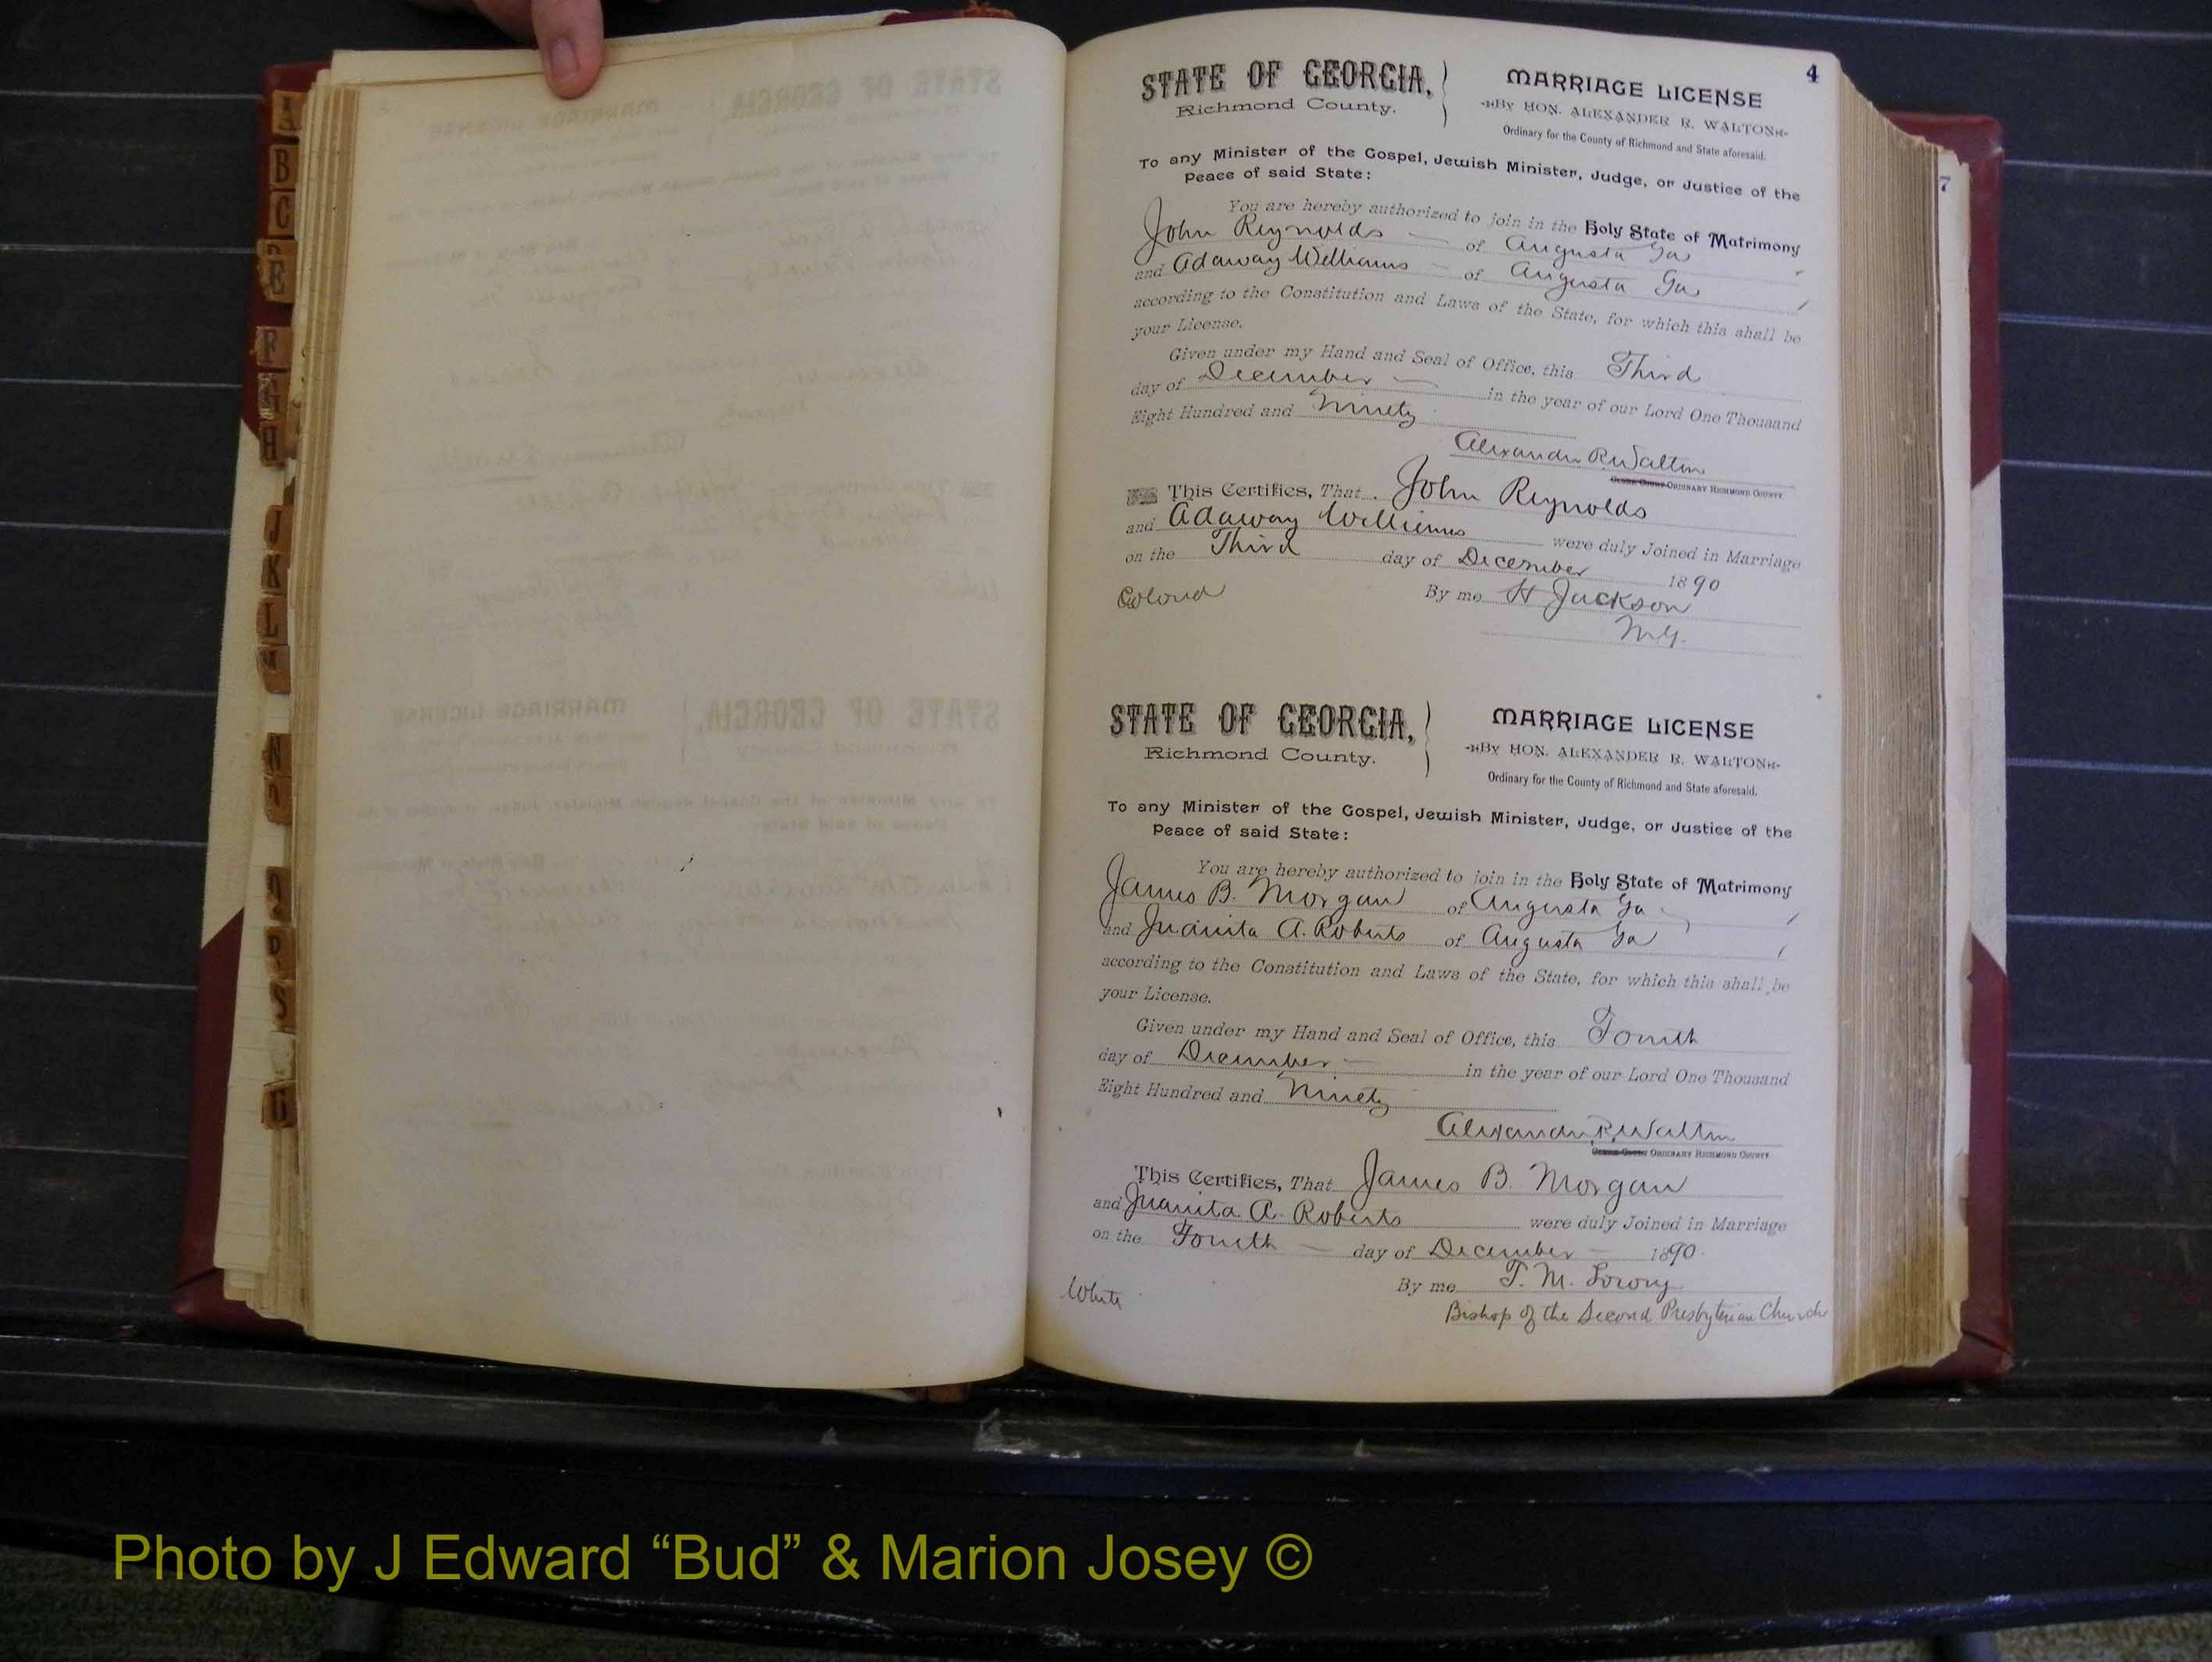 A
B
C
E
F
G
H
J
K
L
M
N
P
S
4
7
STATE OF GEORGIA,
Richmond County.
MARRIAGE LICENSE
By HON. ALEXANDER R. WALTON
Ordinary for the County of Richmond and State aforesaid.
To any Minister of the Gospel, Jewish Minister, Judge, or Justice of the
Peace of said State:
You are hereby authorized to join in the Holy State of Matrimony
John Reynolds of Augusta Ga
and Adaway Williams of Augusta Ga
according to the Constitution and Laws of the State, for which this shall be
your License.
Given under my Hand and Seal of Office, this Third
day of December in the year of our Lord One Thousand
Eight Hundred and Ninety
Alexander R Walton
ORDINARY RICHMOND COUNTY
This Certifies, That John Reynolds
and Adaway Williams were duly Joined in Marriage
on the Third day of December 1890
Colored By me H Jackson
M.G.
STATE OF GEORGIA,
Richmond County.
MARRIAGE LICENSE
By HON. ALEXANDER R. WALTON
Ordinary for the County of Richmond and State aforesaid.
To any Minister of the Gospel, Jewish Minister, Judge, or Justice of the
Peace of said State:
You are hereby authorized to join in the Holy State of Matrimony
James B. Morgan of Augusta Ga
and Juanita A. Roberts of Augusta Ga
according to the Constitution and Laws of the State, for which this shall be
your License.
Given under my Hand and Seal of Office, this Fourth
day of December in the year of our Lord One Thousand
Eight Hundred and Ninety
Alexander R. Walton
ORDINARY RICHMOND COUNTY
This Certifies, That James B. Morgan
and Juanita A. Roberts were duly Joined in Marriage
on the Fourth day of December 1890.
By me T. M. Lowry
White
Bishop of the Second Presbyterian Church
Photo by J Edward “Bud” & Marion Josey ©